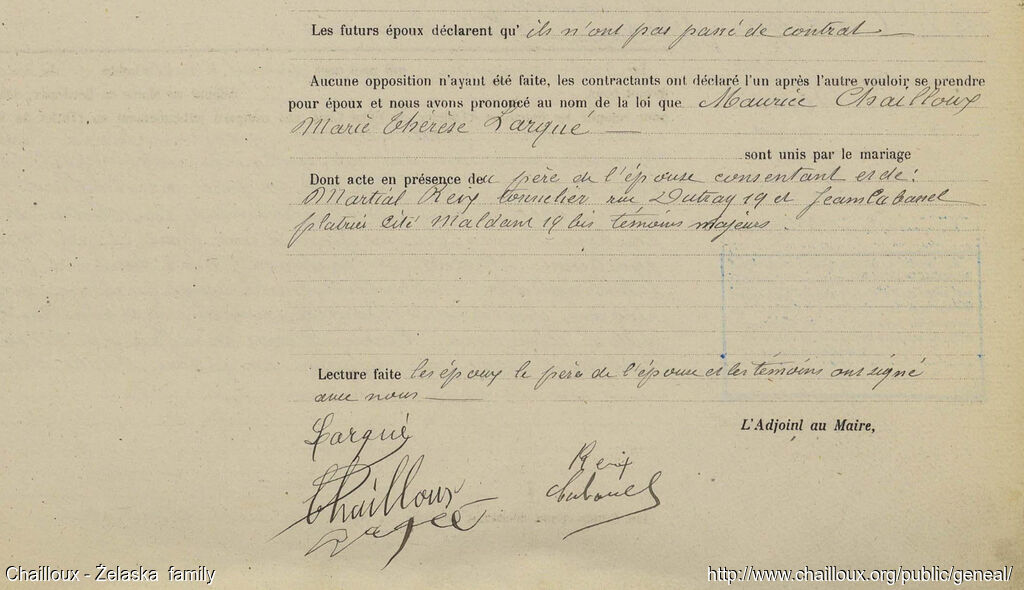 Les futurs époux déclarent qu' ils n'ont pas passé de contrat
Aucune opposition n'ayant été faite, les contractants ont déclaré l'un après l'autre vouloir se prendre
pour époux et nous avons prononcé au nom de la loi que Maurice Chailloux
Marie Thérèse Larqué
sont unis par le mariage
Dont acte en présence de père de l'épouse consentant et de :
Martial Reix tonnelier rue Dutray 19 et Jean Cabanel
platrier cité Maldant 19 bis témoins majeurs.
Lecture faite les époux le père de l'épouse et les témoins ont signé
avec nous
L'Adjoint au Maire,
Larqué
Reix
Chailloux
Chailloux - Želaska family
http://www.chailloux.org/public/geneal/